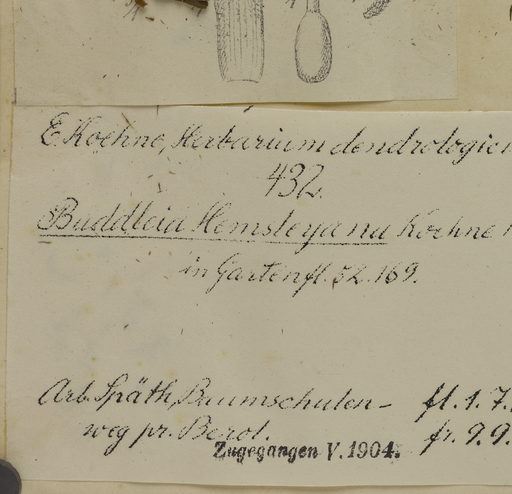 E. Koehne, Herbarium dendrologic
432.
Buddleia Hemsleyana Koehne
in Gartenfl. 52. 169.
Arb. Späth, Baumschulen- fl. 1. 7.
weg pr. Berol. fr. 9. 9.
Zugegangen V. 1904.